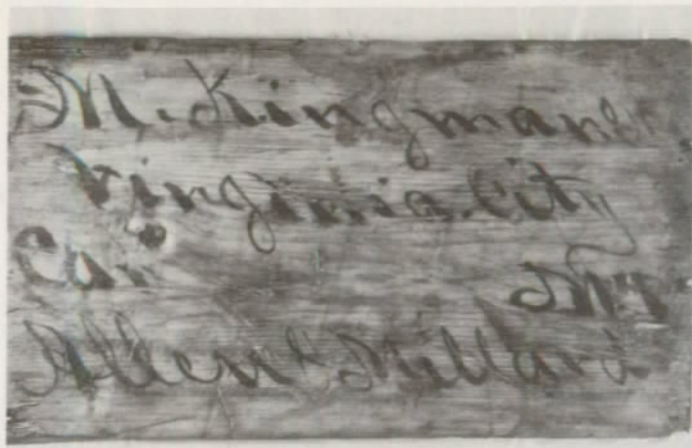 M. Kingman &
Virginia City
Car M.T.
Allen & Millard